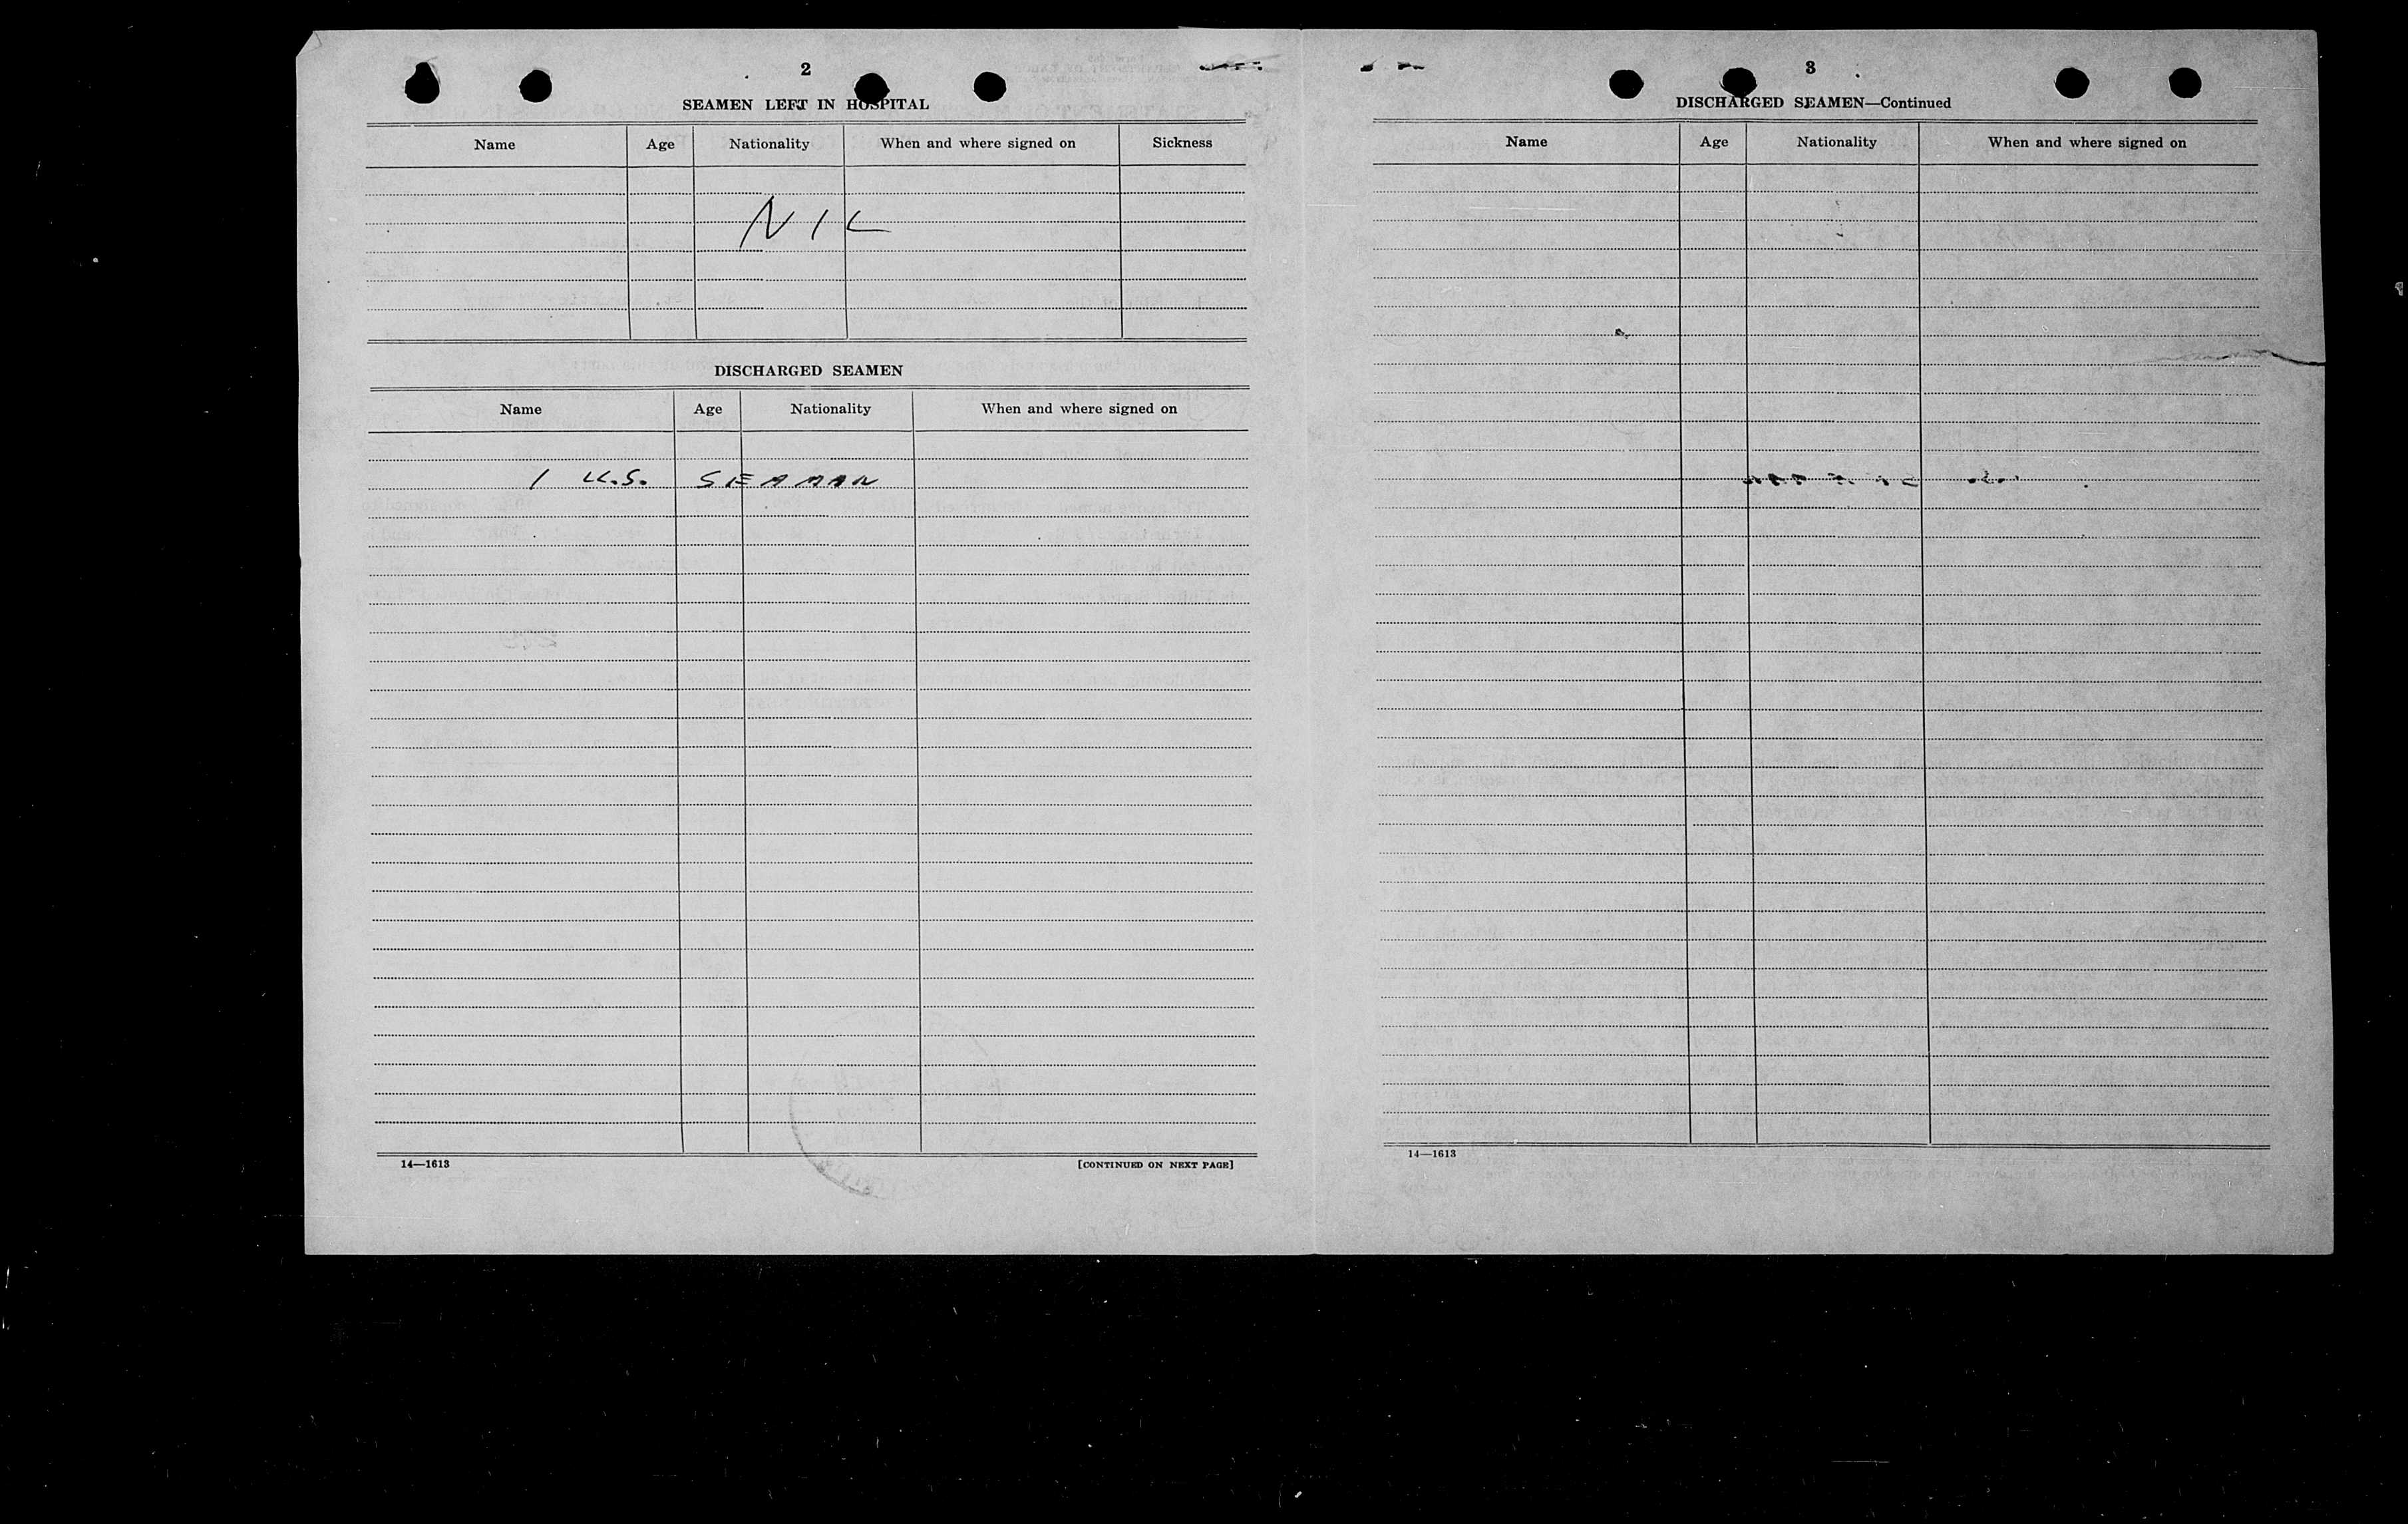 2
SEAMEN LEFT IN HOSPITAL
Name Age Nationality When and where signed on Sickness
NIL
DISCHARGED SEAMEN
Name Age Nationality When and where signed on
1 U.S. SEAMAN
14—1613 [CONTINUED ON NEXT PAGE]
3
DISCHARGED SEAMEN—Continued
Name Age Nationality When and where signed on
14—1613